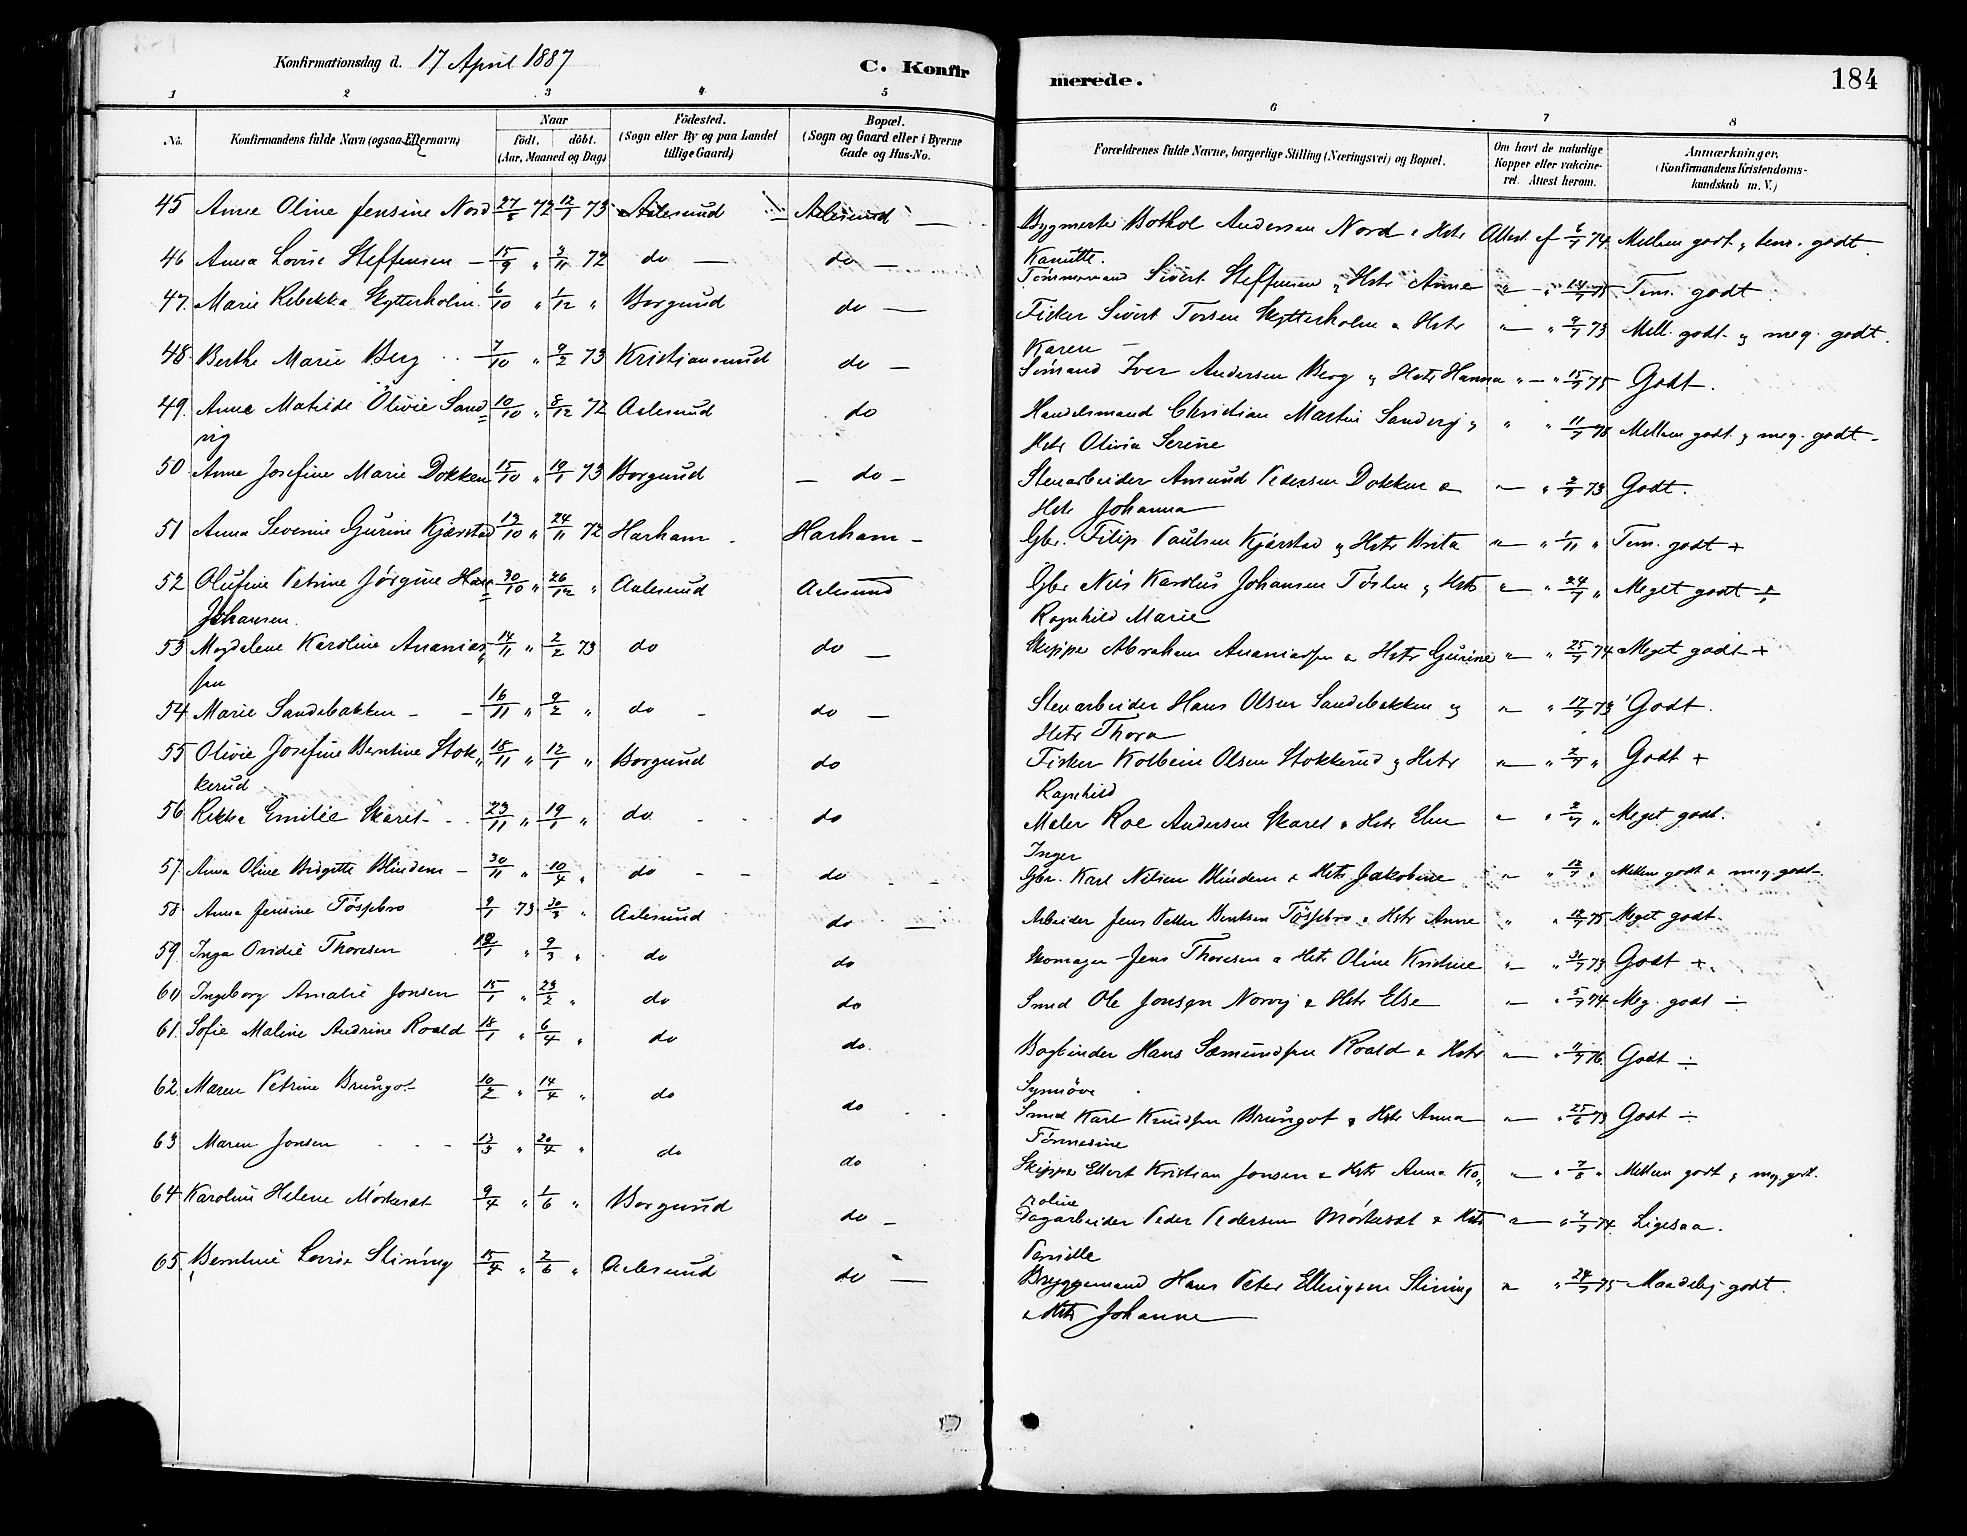 Konfirmationsdag d. 17 April 1887
C. Konfirmerede.
184
1 2 3 4 5 6 7 8
No.
Konfirmandens fulde Navn (ogsaa Efternavn)
Naar
födt. döbt.
(Aar, Maaned og Dag)
Födested.
(Sogn eller By og paa Landet
tillige Gaard)
Bopæl.
(Sogn og Gaard eller i Byerne
Gade og Hus-No.
Forældrenes fulde Navne, borgerlige Stilling (Næringsvei) og Bopæl.
Om havt de naturlige
Kopper eller vakcine-
ret. Attest herom.
Anmærkninger.
(Konfirmandens Kristendoms-
kundskab m. V.)
45 Anne Oline Jensine Nord 27/8 72 12/1 73 Aalesund Aalesund Bygmester Bothol Andersen Nord & Hstr Attest af 6/7 74 Mellem godt & tem. godt
Kanutte.
46 Anna Lovise Steffensen 15/9 " 3/11 72 do do Tömmermand Sivert Steffensen & Hstr Anne Tem. godt
47 Marie Rebekka Skytterholm 6/10 " 1/12 " Borgund do Fisker Sivert Torsen Skytterholm & Hstr 9/7 73 Mell. godt & meg. godt.
Karen
48 Berthe Marie Berg 7/10 " 9/2 73 Kristiansund do Sömand Iver Andersen Berg & Hstr Hanna 15/9 75 Godt.
49. Anne Matilde Olivie Sand= 10/10 " 8/12 72 Aalesund do Handelsmand Christian Martin Sandvig & Mellem godt & meg. godt
vig Hstr Olivia Serine
50 Anne Josefine Marie Dokken 15/10 " 19/1 73 Borgund do Stenarbeider Amund Pedersen Dokken & 73 Godt.
Hstr Johanna
51 Anna Severine Gurine Kjærstad 19/10 " 24/11 72 Harham Harham Gbr. Filip Paulsen Kjærstad & Hstr Brita 1/11 " Tem. godt +
52 Olufine Petrine Jörgine 30/10 " 26/12 " Aalesund Aalesund Gbr Nils Karolus Johansen & Hstr 24/7 " Meget godt
Johansen. Ragnhild Marie
53 Magdalene Karoline Ananias= 14/11 " 2/2 73 do do Skipper Abraham Ananiassen & Hstr Gurine 25/7 74 Meget godt +
sen
54 Marie Sandebakken 16/11 " 9/2 " do do Stenarbeider Hans Olsen Sandebakken & 17/7 73 Godt.
Hstr Thora
55 Olivie Josefine Berntine Stok" 18/11 " 12/1 " Borgund do Fisker Kolbein Olsen Stokkerud & Hstr 2/7 " Godt +
kerud Ragnhild
56 Rikka Emilie Skaret 23/11 " 19/1 " do do Maler Roe Andersen Skaret & Hstr Elen Meget godt.
Inger
57. Anna Oline Birgitte Blindem 30/11 " 10/4 " do do Gbr. Karl Nilsen Blindem & Hstr Jakobine 12/7 " Mellem godt & meg. godt
58 Anna Jensine Tössebro 9/1 73 30/3 " Aalesund do Arbeider Jens Petter Berntsen Tössebro & Hstr Anne 75 Meget godt.
59 Inga Ovidie Thoresen 9/3 " do do Skomager Jens Thoresen & Hstr Oline Kristine 73 Godt +.
60 Ingeborg Amalie Jonsen 15/1 " 23/2 " do do Smed Ole Jonsen Norvig & Hstr Else 5/7 74 Meg. godt ÷
61. Sofie Maline Andrine Roald 18/1 " 6/4 " do do Bogbinder Hans Sæmundsen Roald & Hstr 76. Godt ÷
Synnöve
62 Maren Petrine Brungot 10/2 " 14/4 " do do Smed Karl Knudsen Brungot & Hstr Anna 25/6 73 Godt ÷
Tönnesine
63 Maren Jonsen 13/3 " 20/4 " do do Skipper Ellert Kristian Jonsen & Hstr Anna Ka" 7/8 " Mellem godt & meg. godt.
roline
64 Karoline Helene Mörkesæt 9/4 " 1/6 " Borgund do Dagarbeider Peder Pedersen Mörkesæt & Hstr 74 Ligesaa.
Pernille
65 Berntine Lovise Stirning 15/4 " 2/6 " Aalesund do Bryggemand Hans Peter Ellingsen Stirning 24/7 75 Maadelig godt.
& Hstr Johanne